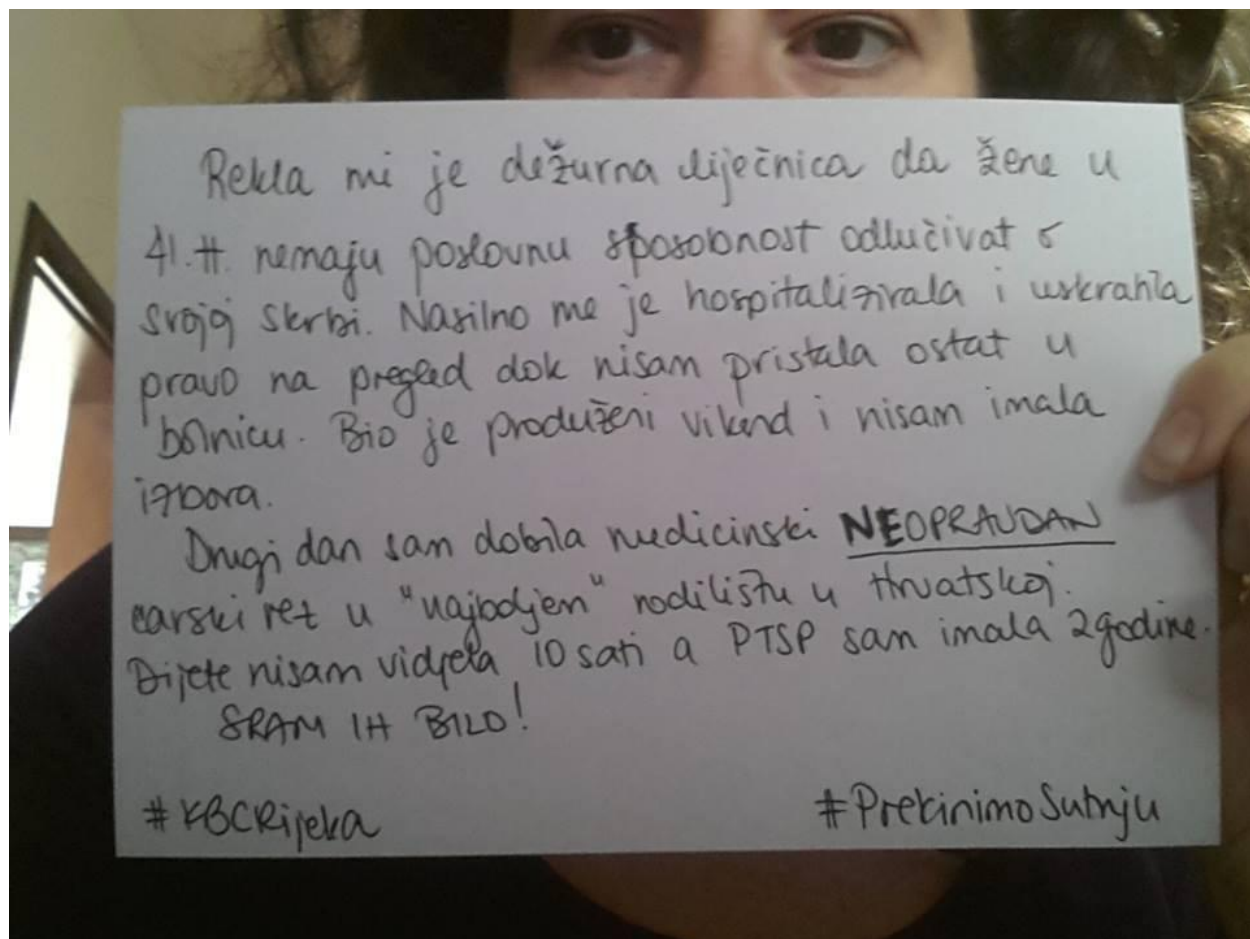 Rekla mi je dežurna liječnica da žene u
41.tt. nemaju poslovnu sposobnost odlučivat o
svojoj skrbi. Nasilno me je hospitalizirala i uskratila
pravo na pregled dok nisam pristala ostat u
bolnicu. Bio je produženi vikend i nisam imala
izbora.
Drugi dan sam dobila medicinski NEOPRAVDAN
carski rez u "najboljem" rodilištu u Hrvatskoj.
Dijete nisam vidjela 10 sati a PTSP sam imala 2 godine.
SRAM IH BILO!
#KBCRijeka
#PrekinimoŠutnju